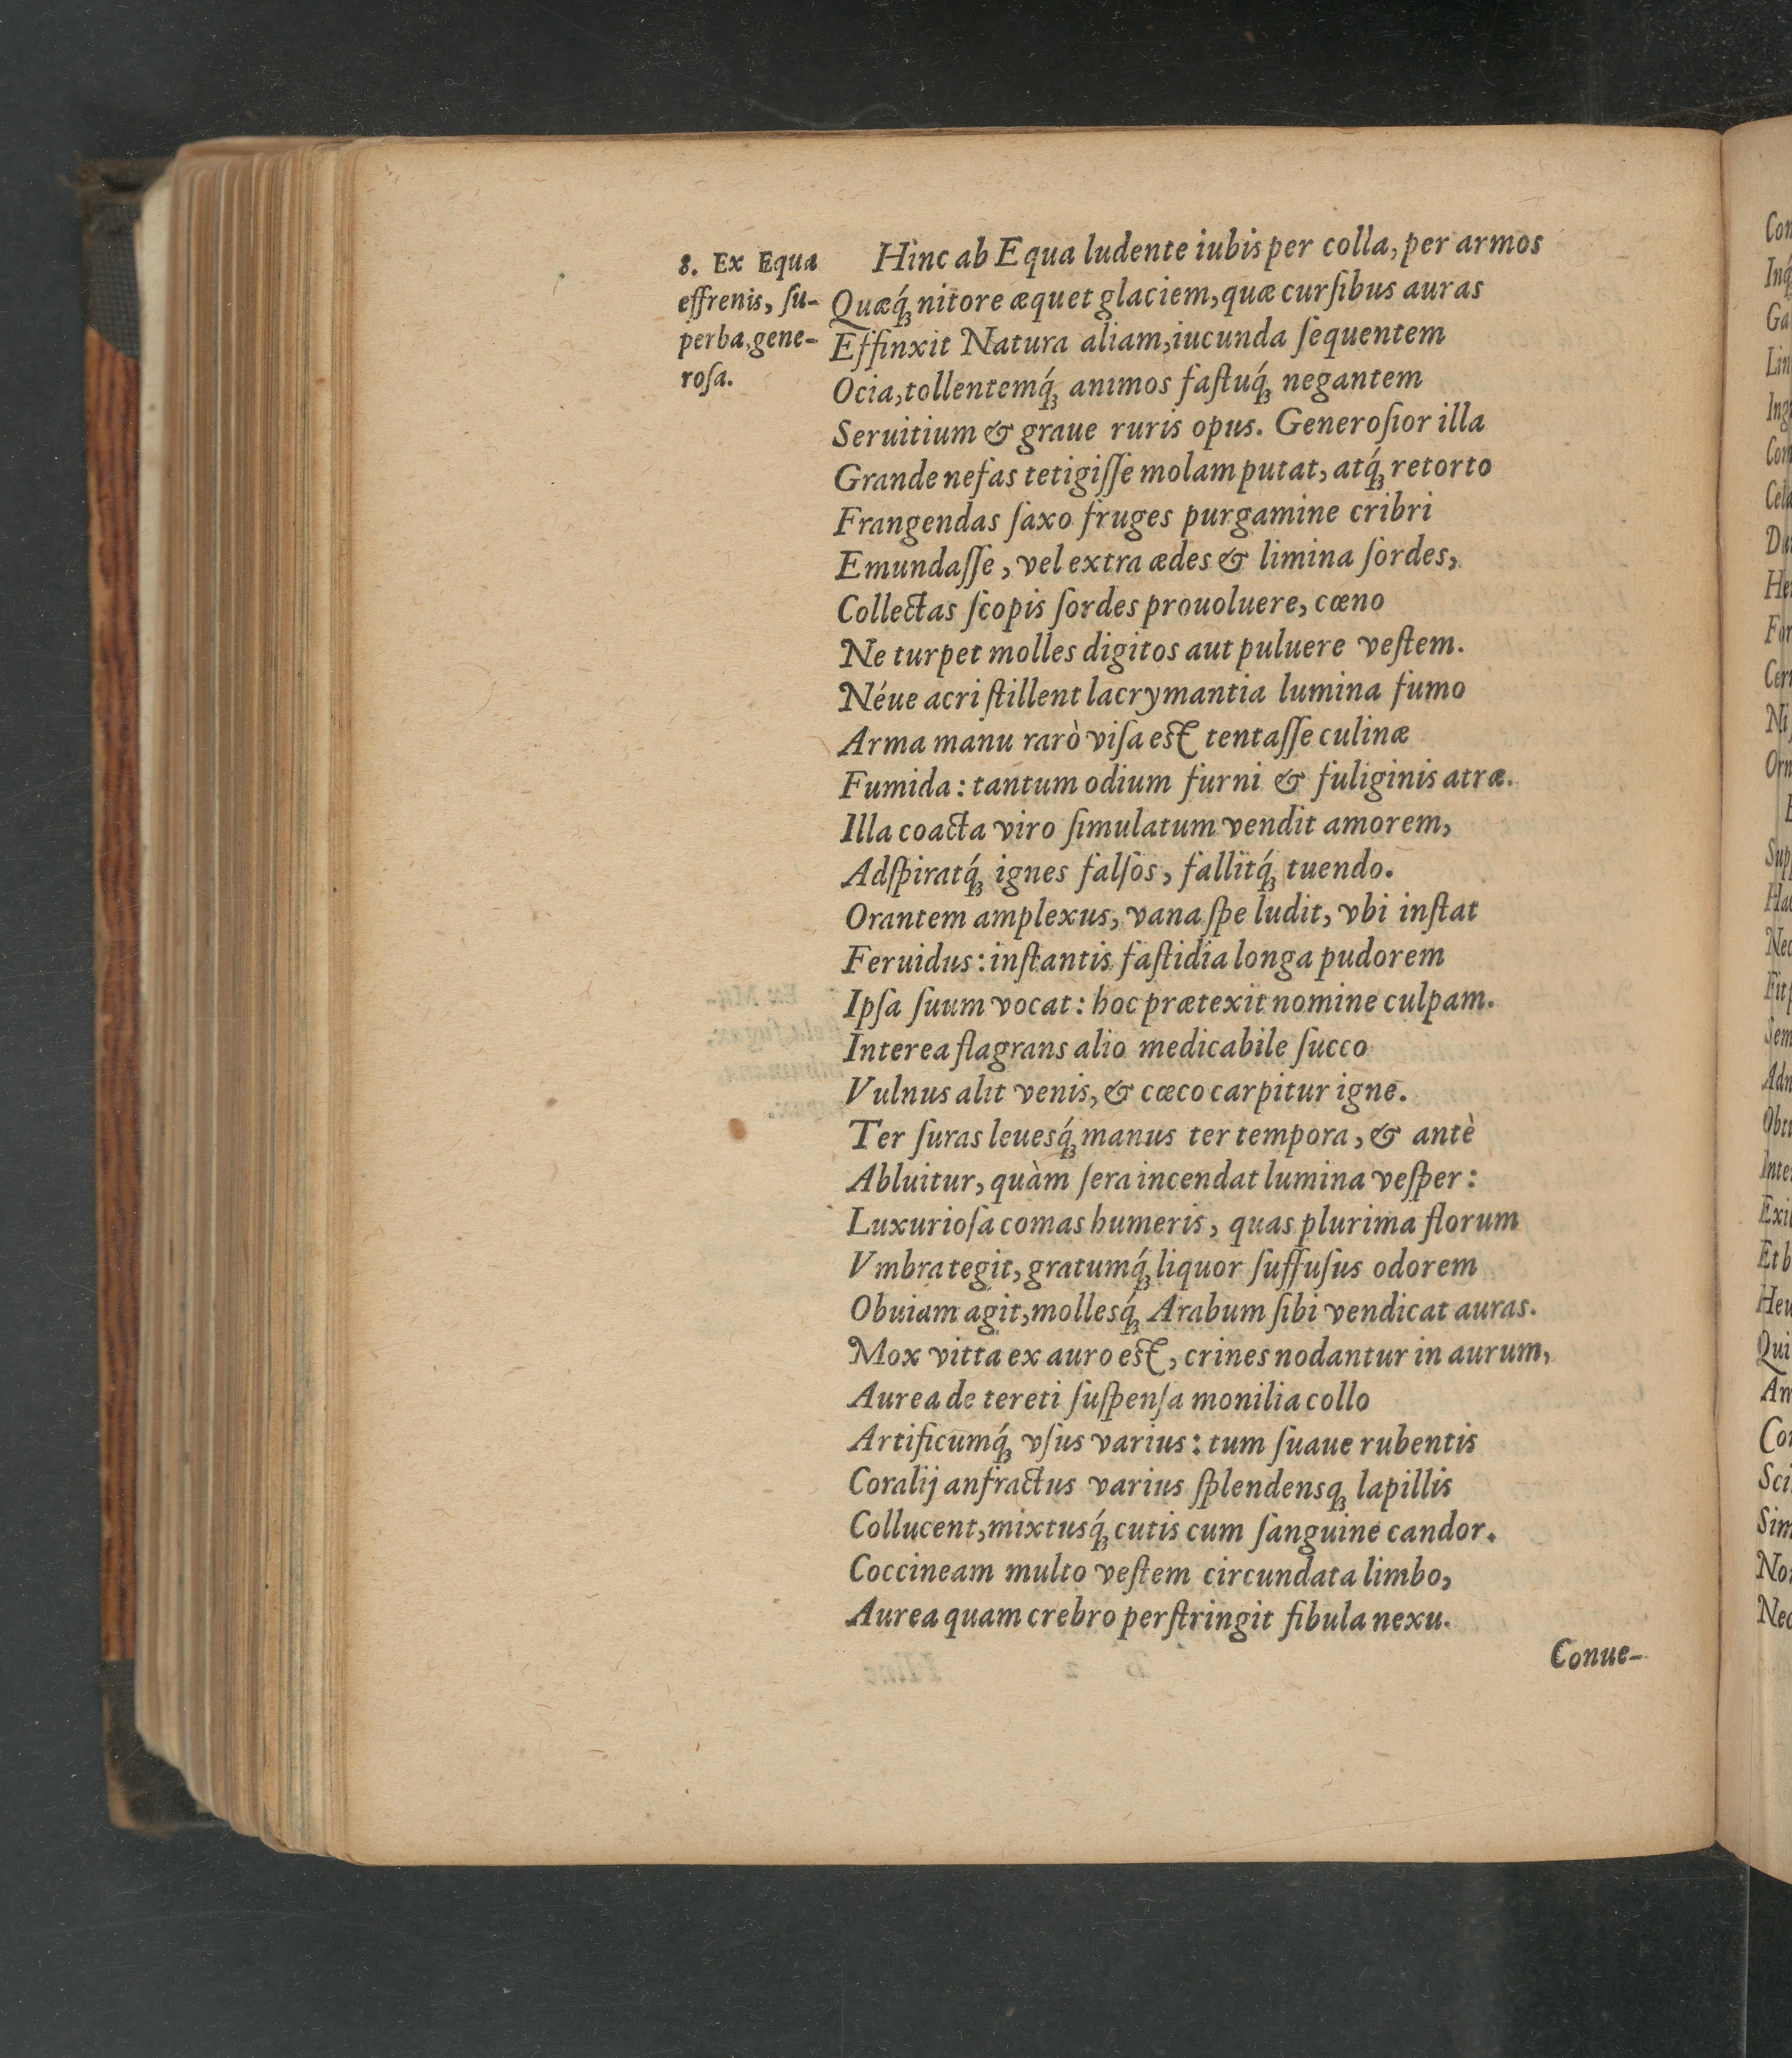 8. Ex Equa
effrenis, ſu-
perba, gene-
roſa.
Hinc ab Equa ludente iubis per colla, per armos
Quæq́ꝫ nitore æquet glaciem, quæ curſibus auras
Effinxit Natura aliam, iucunda ſequentem
Ocia, tollentemq́ꝫ animos faſtuq́ꝫ negantem
Seruitium & graue ruris opus. Generoſior illa
Grande nefas tetigiſſe molam putat, atq́ꝫ retorto
Frangendas ſaxo fruges purgamine cribri
Emundaſſe, vel extra ædes & limina ſordes,
Collectas ſcopis ſordes prouoluere, cœno
Ne turpet molles digitos aut puluere veſtem.
Néue acri ſtillent lacrymantia lumina fumo
Arma manu rarò viſa eſt tentaſſe culinæ
Fumida: tantum odium furni & fuliginis atræ.
Illa coacta viro ſimulatum vendit amorem,
Adſpiratq́ꝫ ignes falſos, fallitq́ꝫ tuendo.
Orantem amplexus, vana ſpe ludit, vbi inſtat
Feruidus: inſtantis faſtidia longa pudorem
Ipſa ſuum vocat: hoc prætexit nomine culpam.
Interea flagrans alio medicabile ſucco
Vulnus alit venis, & cœco carpitur igne.
Ter ſuras leuesq́ꝫ manus ter tempora, & antè
Abluitur, quàm ſera incendat lumina veſper:
Luxurioſa comas humeris, quas plurima florum
Vmbra tegit, gratumq́ꝫ liquor ſuffuſus odorem
Obuiam agit, mollesq́ꝫ Arabum ſibi vendicat auras.
Mox vitta ex auro eſt, crines nodantur in aurum,
Aurea de tereti ſuſpenſa monilia collo
Artificumq́ꝫ vſus varius: tum ſuaue rubentis
Coralij anfractus varius ſplendensqꝫ lapillis
Collucent, mixtusq́ꝫ cutis cum ſanguine candor.
Coccineam multo veſtem circundata limbo,
Aurea quam crebro perſtringit fibula nexu.
Conue-